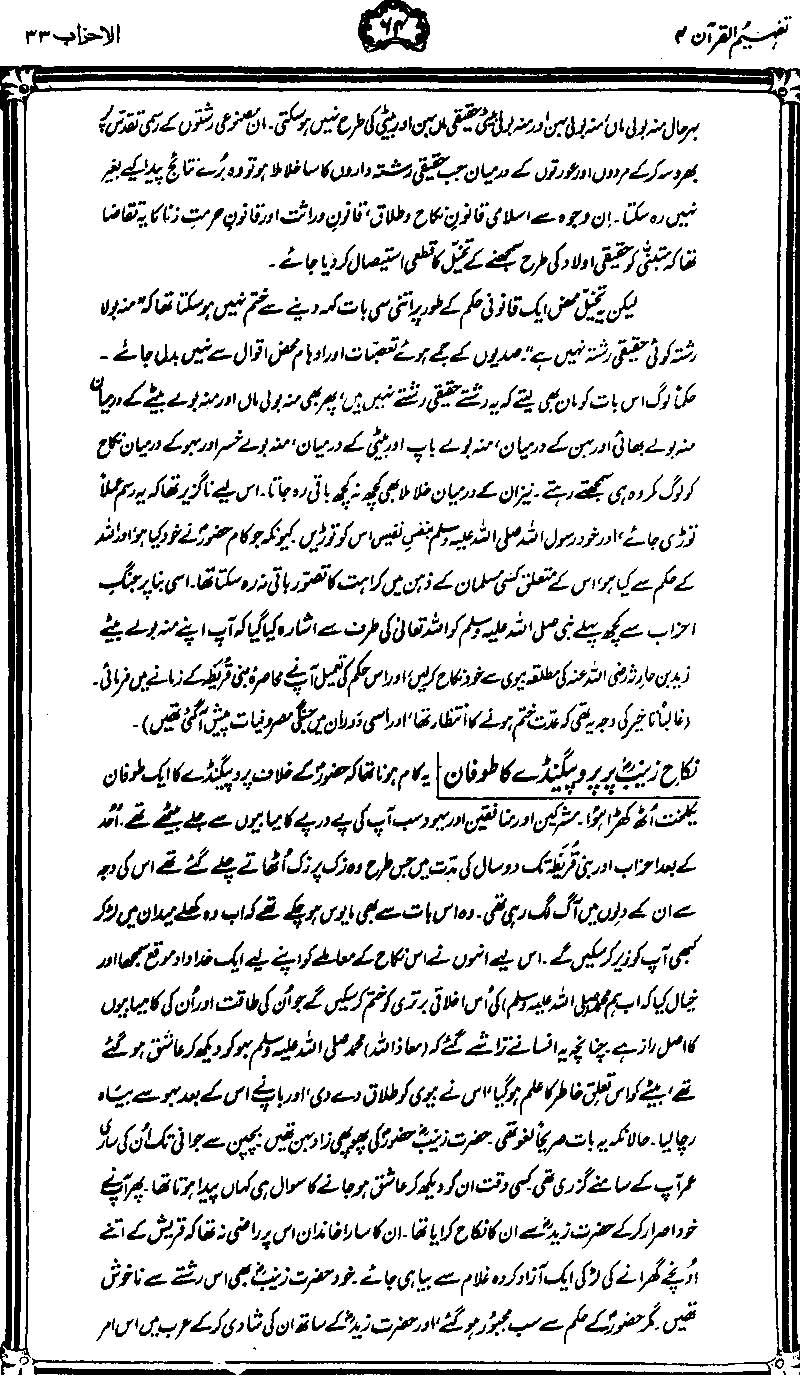 تفہیم القرآن ۴
۶۴
الاحزاب ۳۳
بہرحال منہ بولی ماں، منہ بولی بہن اور منہ بولی بیٹی حقیقی ماں بہن اور بیٹی کی طرح نہیں ہو سکتی۔ ان مصنوعی رشتوں کے رسمی تقدس پر
بھروسہ کر کے مردوں اور عورتوں کے درمیان جب حقیقی رشتہ داروں کا سا خلا ملا ہو تو وہ بُرے نتائج پیدا کیے بغیر
نہیں رہ سکتا۔ اِن وجوہ سے اسلامی قانونِ نکاح و طلاق، قانونِ وراثت اور قانونِ حرمتِ زنا کا یہ تقاضا
تھا کہ متبنّٰی کو حقیقی اولاد کی طرح سمجھنے کے تخیّل کا قطعی استیصال کر دیا جائے۔
لیکن یہ تخیّل محض ایک قانونی حکم کے طور پر اتنی سی بات کہہ دینے سے ختم نہیں ہو سکتا تھا کہ "منہ بولا
رشتہ کوئی حقیقی رشتہ نہیں ہے"۔ صدیوں کے جمے ہوئے تعصبات اور اوہام محض اقوال سے نہیں بدل جاتے۔
حکماً لوگ اس بات کو مان بھی لیتے کہ یہ رشتے حقیقی رشتے نہیں ہیں، پھر بھی منہ بولی ماں اور منہ بولے بیٹے کے درمیان
منہ بولے بھائی اور بہن کے درمیان، منہ بولے باپ اور بیٹی کے درمیان، منہ بولے خسر اور بہو کے درمیان نکاح
کو لوگ مکروہ ہی سمجھتے رہتے۔ نیز ان کے درمیان خلا ملا بھی کچھ نہ کچھ باقی رہ جاتا۔ اس لیے ناگزیر تھا کہ یہ رسم عملاً
توڑی جائے، اور خود رسول اللہ صلی اللہ علیہ وسلم بنفسِ نفیس اس کو توڑیں۔ کیونکہ جو کام حضورؐ نے خود کیا ہو، اور اللہ
کے حکم سے کیا ہو، اس کے متعلق کسی مسلمان کے ذہن میں کراہت کا تصوّر باقی نہ رہ سکتا تھا۔ اسی بنا پر جنگِ
احزاب سے کچھ پہلے نبی صلی اللہ علیہ وسلم کو اللہ تعالٰی کی طرف سے اشارہ کیا گیا کہ آپ اپنے منہ بولے بیٹے
زید بن حارثہ رضی اللہ عنہ کی مطلقہ بیوی سے خود نکاح کر لیں، اور اس حکم کی تعمیل آپ نے محاصرۂ بنی قُریظہ کے زمانے میں فرمائی۔
(غالباً تاخیر کی وجہ یہ تھی کہ عدّت ختم ہونے کا انتظار تھا، اور اسی دوران میں جنگی مصروفیات پیش آ گئی تھیں)۔
نکاحِ زینبؓ پر پروپیگنڈے کا طوفان یہ کام ہونا تھا کہ حضورؐ کے خلاف پروپیگنڈے کا ایک طوفان
یکلخت اُٹھ کھڑا ہوا۔ مشرکین اور منافقین اور یہود سب آپ کی پے درپے کامیابیوں سے جلے بیٹھے تھے۔ اُحُد
کے بعد احزاب اور بنی قُریظہ تک دو سال کی مدّت میں جس طرح وہ زک پر زک اُٹھاتے چلے گئے تھے اس کی وجہ
سے ان کے دلوں میں آگ لگ رہی تھی۔ وہ اس بات سے بھی مایوس ہو چکے تھے کہ اب وہ کھلے میدان میں لڑ کر
کبھی آپ کو زیر کر سکیں گے۔ اس لیے انہوں نے اس نکاح کے معاملے کو اپنے لیے ایک خداداد موقع سمجھا اور
خیال کیا کہ اب ہم محمد (صلی اللہ علیہ وسلم) کی اُس اخلاقی برتری کو ختم کر سکیں گے جو اُن کی طاقت اور اُن کی کامیابیوں
کا اصل راز ہے۔ چنانچہ یہ افسانے تراشے گئے کہ (معاذ اللہ) محمد صلی اللہ علیہ وسلم بہو کو دیکھ کر عاشق ہو گئے
تھے، بیٹے کو اس تعلقِ خاطر کا علم ہو گیا، اس نے بیوی کو طلاق دے دی، اور باپ نے اس کے بعد بہو سے بیاہ
رچا لیا۔ حالانکہ یہ بات صریحاً لغو تھی۔ حضرت زینبؓ حضورؐ کی پھوپھی زاد بہن تھیں۔ بچپن سے جوانی تک اُن کی ساری
عمر آپ کے سامنے گزری تھی۔ کسی وقت ان کو دیکھ کر عاشق ہو جانے کا سوال ہی کہاں پیدا ہوتا تھا۔ پھر آپ نے
خود اصرار کر کے حضرت زیدؓ سے ان کا نکاح کرایا تھا۔ ان کا سارا خاندان اس پر راضی نہ تھا کہ قریش کے اتنے
اونچے گھرانے کی لڑکی ایک آزاد کردہ غلام سے بیاہی جائے۔ خود حضرت زینبؓ بھی اس رشتے سے ناخوش
تھیں۔ مگر حضورؐ کے حکم سے سب مجبور ہو گئے، اور حضرت زیدؓ کے ساتھ ان کی شادی کر کے عرب میں اس امر